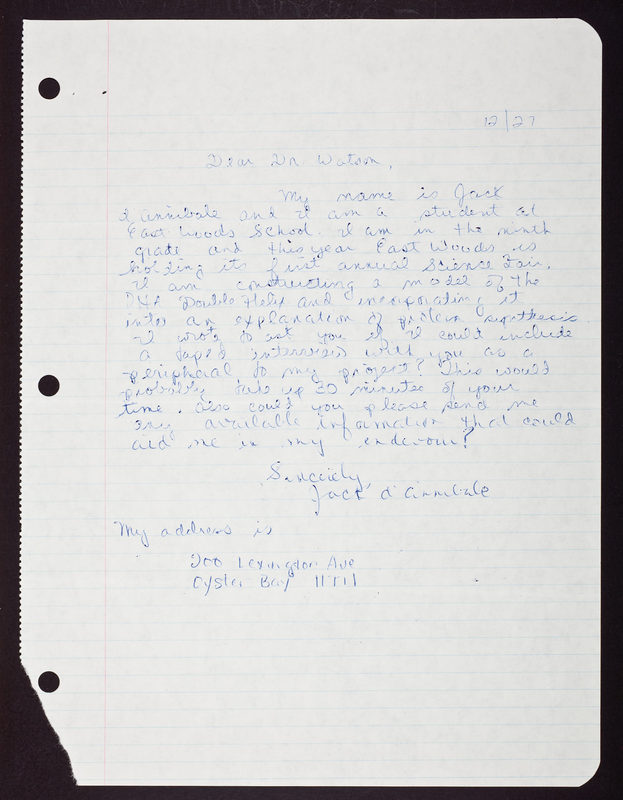 12/27
Dear Dr Watson,
My name is Jack
d'annibale and I am a student at
East Woods School. I am in the ninth
grade and this year East Woods is
holding its first annual Science Fair.
I am constructing a model of the
Double Helix and incorporating it
into an explanation of protein synthesis.
I wrote to ask you if I could include
a taped interview with you as a
peripheral to my project? This would
probably take up 30 minutes of your
time. Also could you please send me
any available information that could
aid me in my endevour?
Sincerely,
Jack d'annibale
My address is
200 Lexington Ave
Oyster Bay